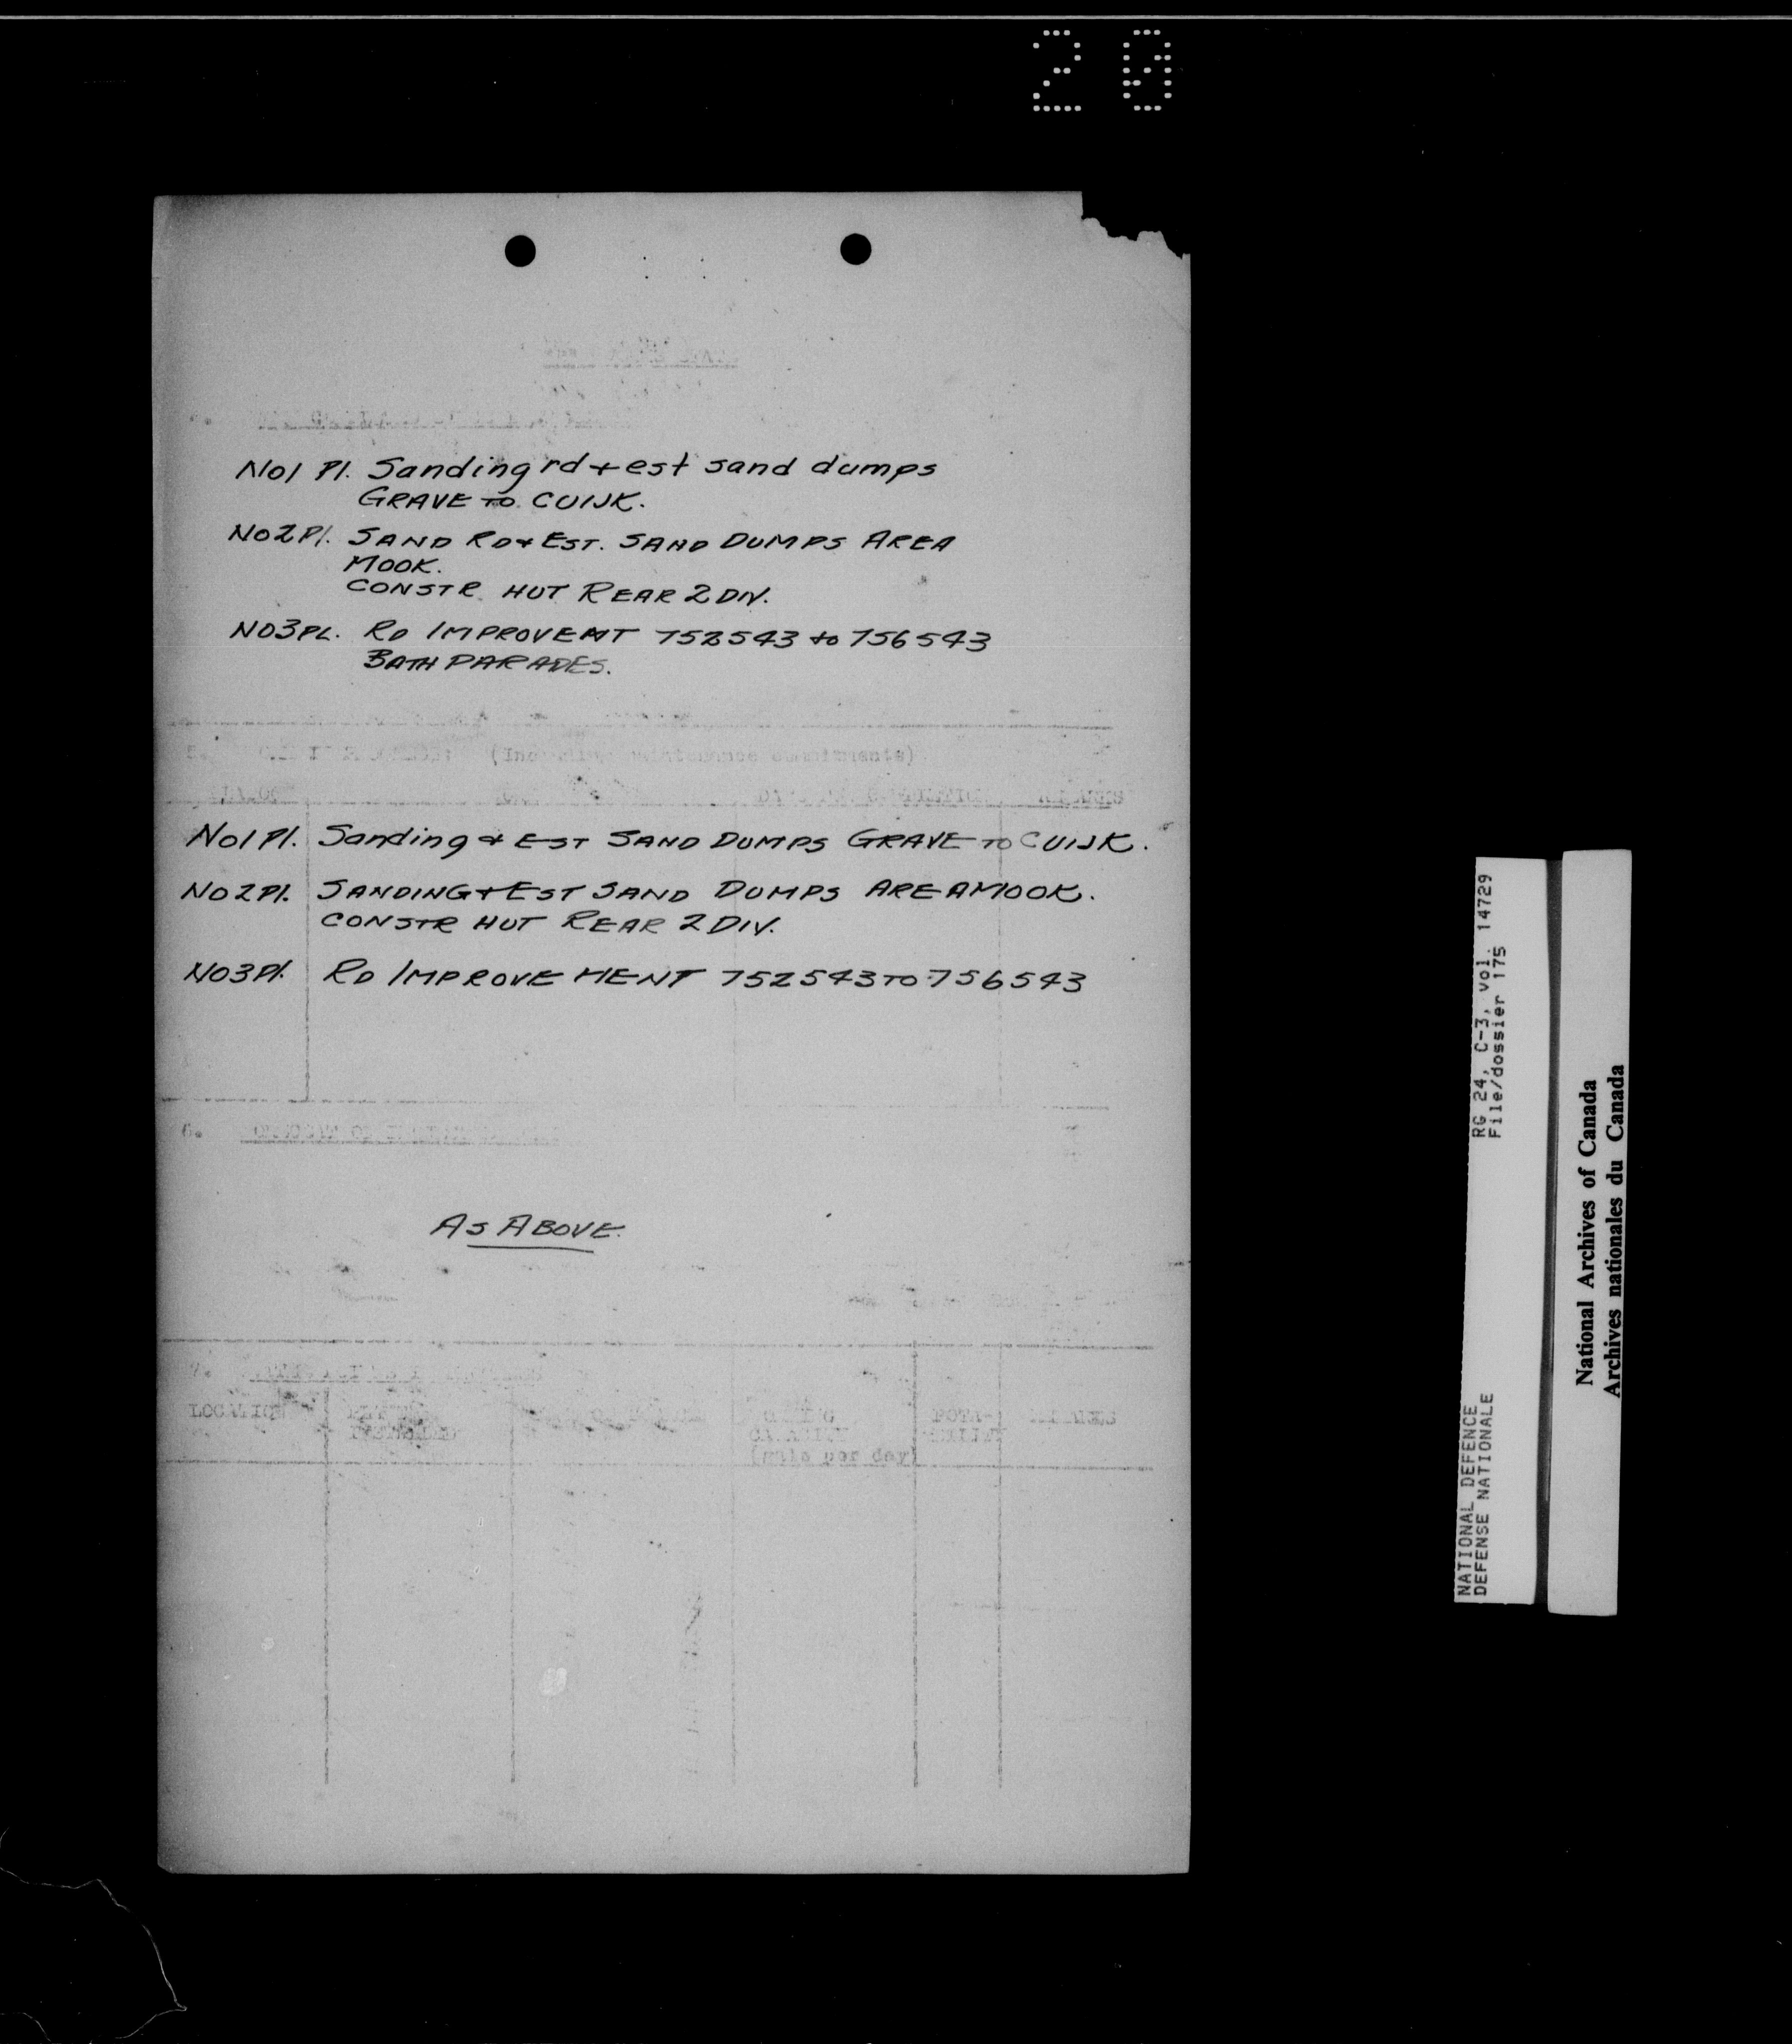 20
No1 Pl. Sanding rd + est sand dumps
GRAVE TO CUIJK.
No2 Pl. SAND RD + EST. SAND DUMPS AREA
MOOK.
CONSTR HUT REAR 2 DIV.
No3 PL. RD IMPROVEMT 752543 to 756543
BATH PARADES.
5. (Including maintenance commitments)
No1 Pl. Sanding + EST SAND DUMPS GRAVE TO CUIJK.
No2 Pl. SANDING + EST SAND DUMPS AREA MOOK.
CONSTR HUT REAR 2 DIV.
No3 Pl. RD IMPROVEMENT 752543 TO 756543
6.
AS ABOVE.
7.
LOCATION
POTA-
(mils per day)
NATIONAL DEFENCE RG 24, C-3, vol. 14729
DEFENSE NATIONALE File/dossier 175
National Archives of Canada
Archives nationales du Canada